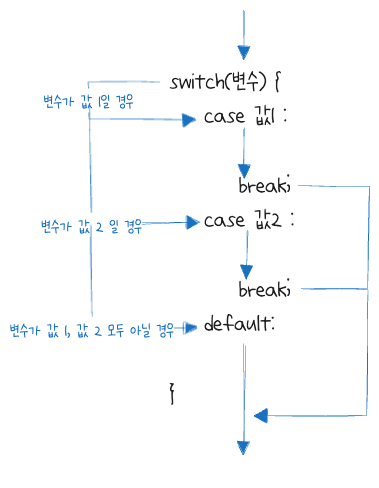 switch(변수) {
변수가 값 1일 경우
case 값1 :
break;
변수가 값 2 일 경우
case 값2 :
break;
변수가 값 1, 값 2 모두 아닐 경우
default:
}